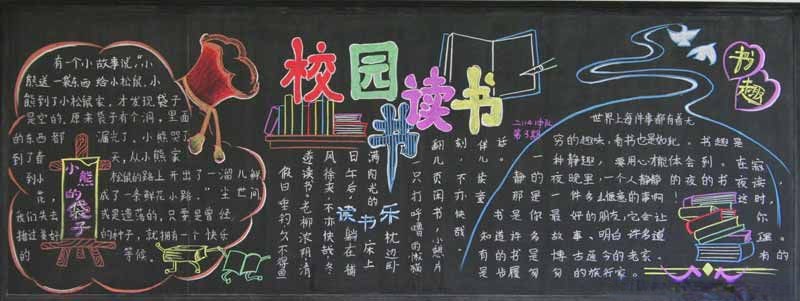 有一个小故事说,"小
熊送一袋东西给小松鼠,小
熊到了小松鼠家,才发现袋子
是空的,原来袋子有个洞,里面
的东西都漏光了,小熊哭了
到了春天,从小熊家
到小松鼠的路上开出了一溜儿鲜
花,成了一条鲜花小路,"尘世间
我们失去或是遗落的,只要是曾经
播过美好的种子,就拥有一个快乐
的等候。
小熊的袋子
校园读书
书
第3期
假日垂钓,久不得鱼
遮读书,老柳浓阴,清
风徐来,不亦快哉 冬
日午后,躺在铺
满阳光的床上
枕边卧
一只打呼噜的懒猫
翻几页闲书,小憩片
刻,不亦快哉。
伴儿读童
书。
读书乐
书趣
世界上每件事都有着无
穷的趣味,看书也是如此。书趣是
一种静趣,要用心才能体会到。在寂
静的夜晚里,一个人静静的夜的书夜读,
那是一件多么惬意的事啊!这时,
书是你最好的朋友,它会让你
知道许多故事。明白许多道理。
有的书是博古通今的老家。有的
是步履匆匆的旅行家。